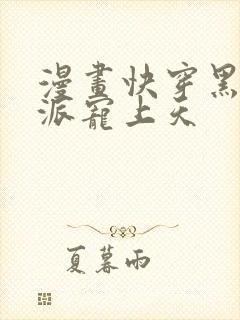 漫畫快穿黑
派寵上天
夏暮雨